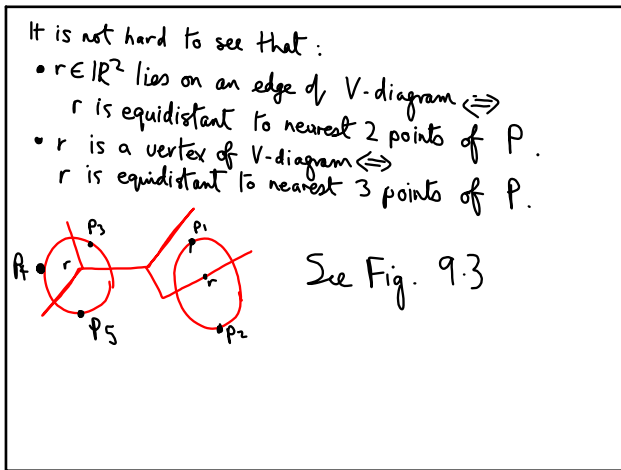 It is not hard to see that:
• r ∈ ℝ² lies on an edge of V-diagram ⟺
r is equidistant to nearest 2 points of P.
• r is a vertex of V-diagram ⟺
r is equidistant to nearest 3 points of P.
P3
P1
P4
r
r
P5
P2
See Fig. 9.3